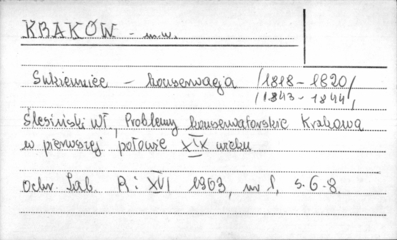 KRAKÓW - m.w.
Sukiennice - konserwacja /1818-1820/,
/1843-1844/,
Ślesiński Wł., Problemy konserwatorskie Krakowa
w pierwszej połowie XIX wieku
Ochr. Zab. R: XVI 1963, nr 1, s. 6-8.